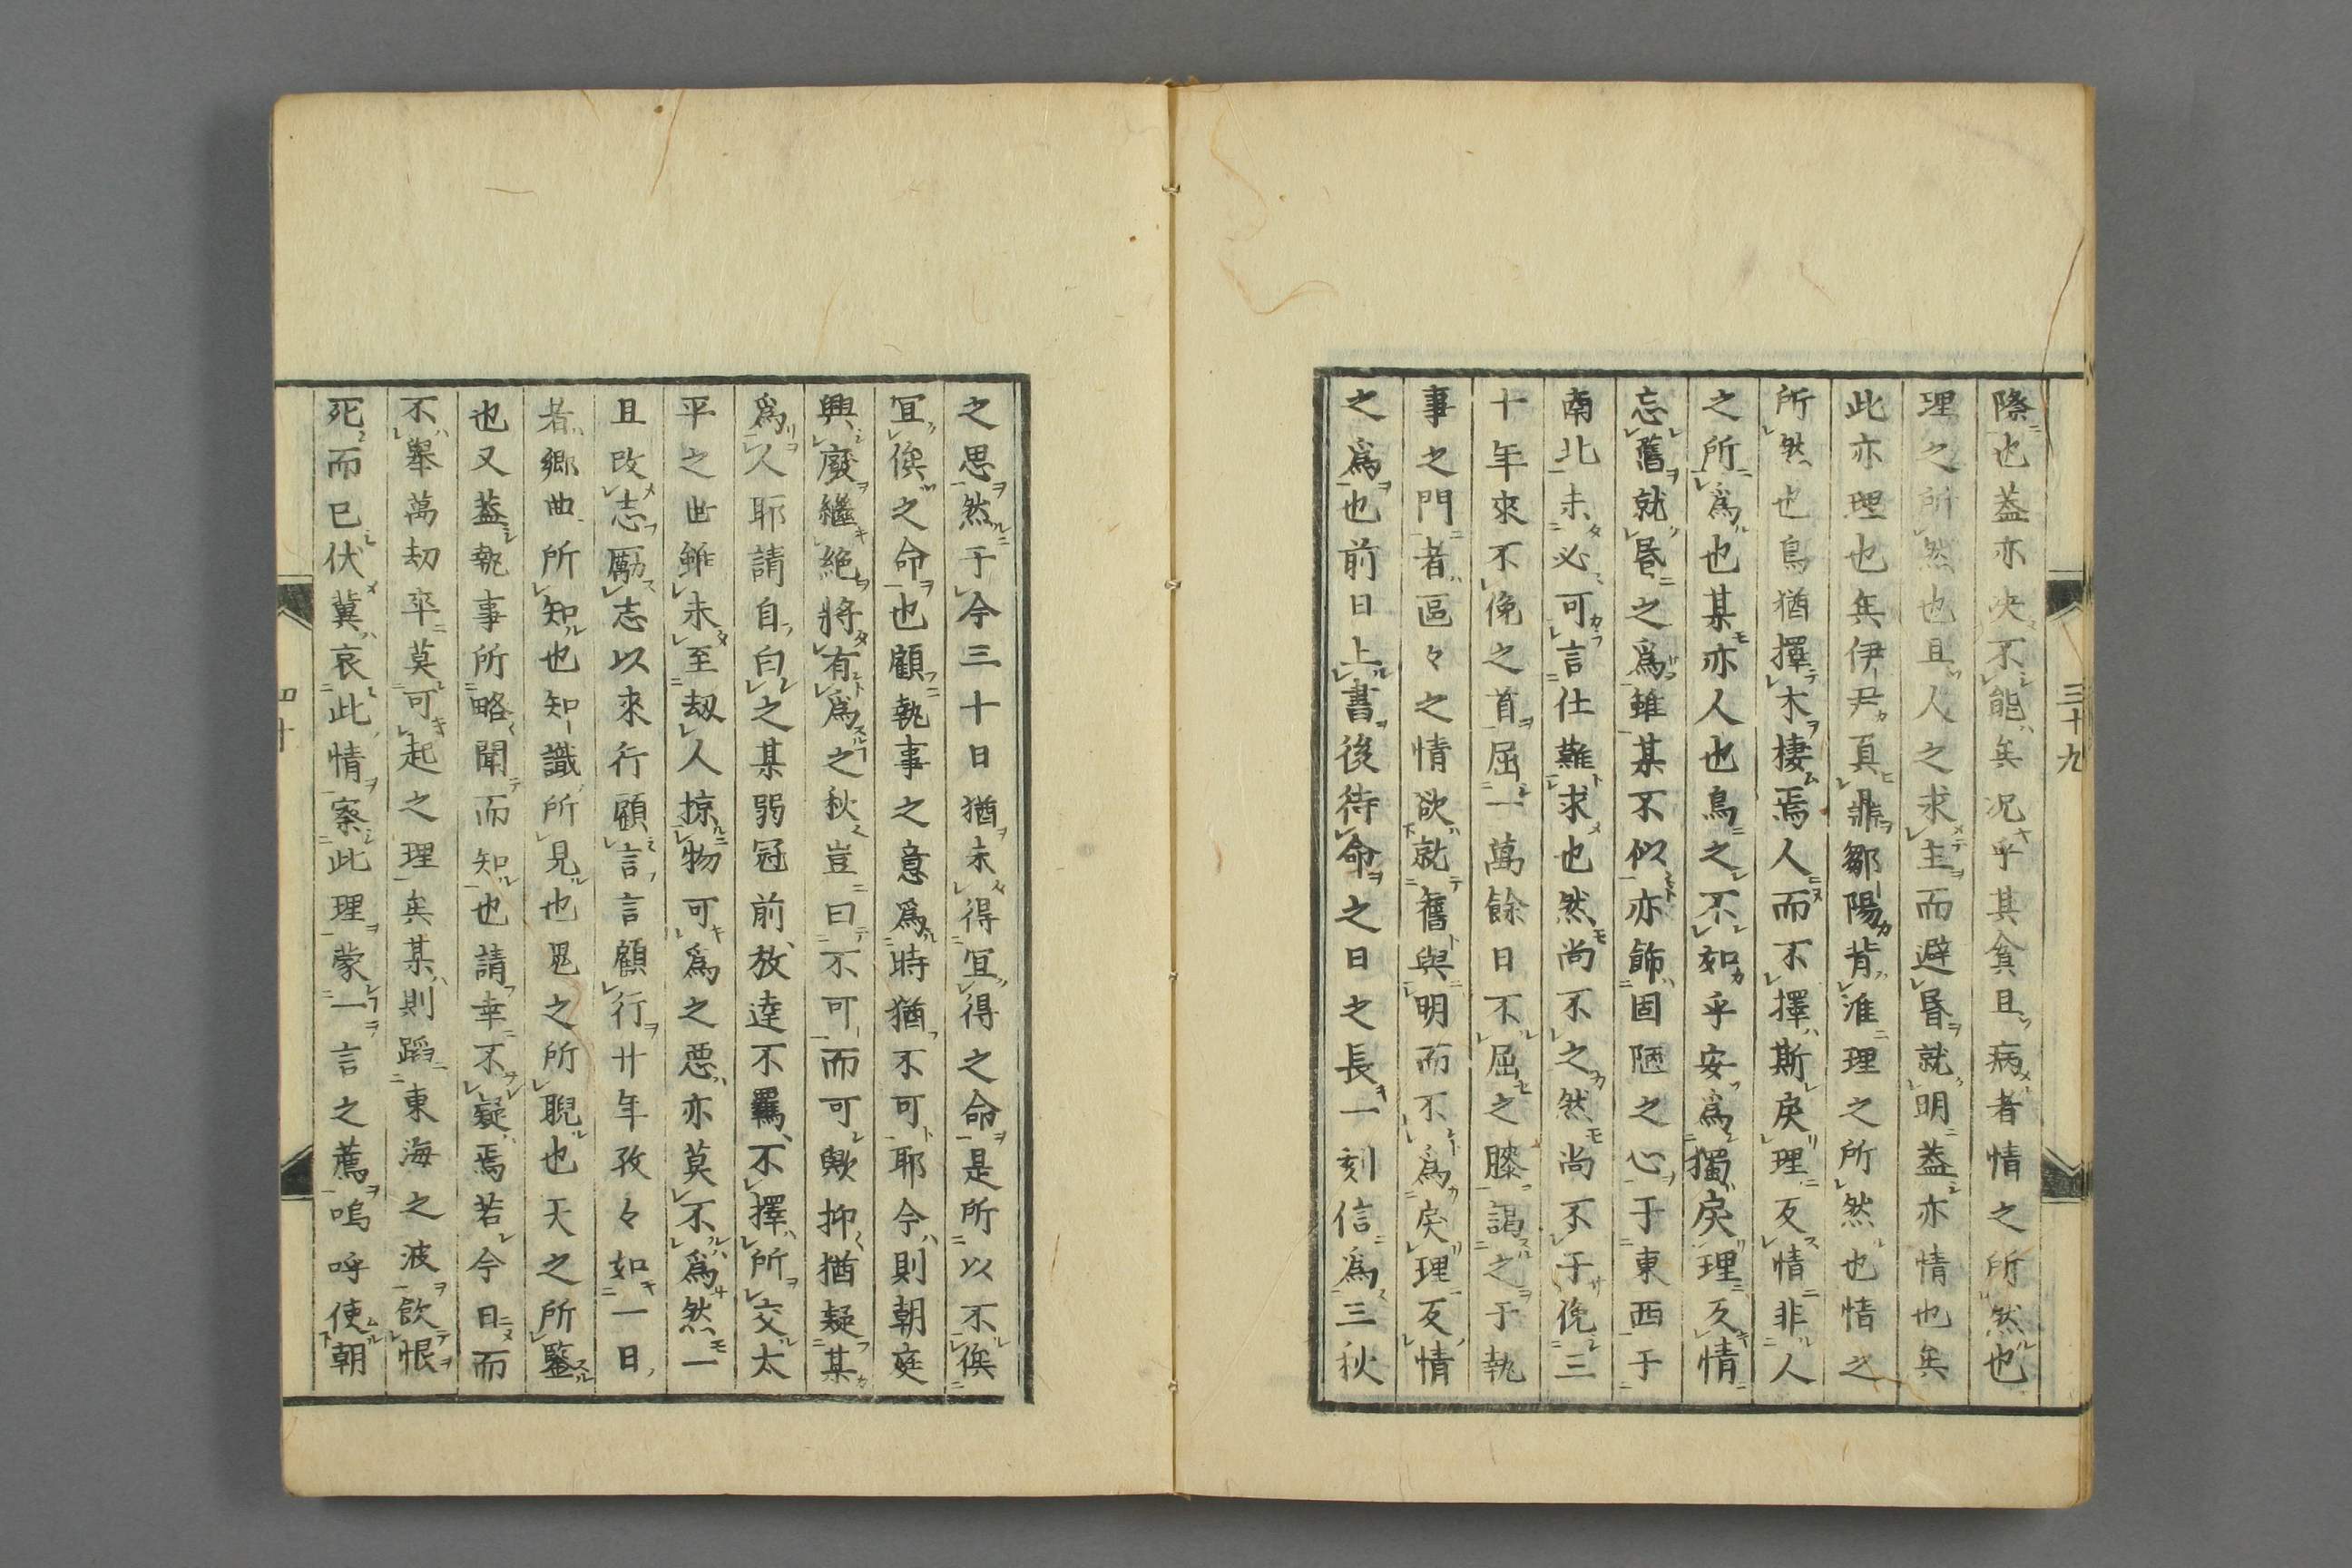 際也葢亦决不能矣况乎其貧且病者情之所然也
理之所然也且人之求主而避昬就明葢亦情也矣
此亦理也矣伊尹負鼎鄒陽背淮理之所然也情之
所然也鳥猶擇木棲焉人而不擇斯戾理反情非人
之所爲也某亦人也鳥之不如乎安爲獨戾理反情
忘舊就昬之爲雖某不似亦飾固陋之心于東西于
南北未必可言仕難求也然尚不之然尚不于俛三
十年來不俛之首屈一萬餘日不屈之膝謁之于執
事之門者區々之情欲就舊與明而不爲戾理反情
之爲也前日上書後待命之日之長一刻信爲三秋
三十九
之思然于今三十日猶未得宜得之命是所以不俟
宜俟之命也顧執事之意爲時猶不可耶今則朝庭
興廢繼絶將有爲之秋豈曰不可而可歟抑猶疑某
爲人耶請自白之某弱冠前放達不羈不擇所交太
平之世雖未至刼人掠物可爲之悪亦莫不爲然一
且改志勵志以來行顧言言顧行廿年孜々如一日
者鄉曲所知也知識所見也鬼之所睨也天之所鑒
也又葢執事所略聞而知也請幸不疑焉若今日而
不舉萬刧卒莫可起之理矣某則蹈東海之波飲恨
死而已伏冀哀此情察此理蒙一言之薦嗚呼使朝
四十